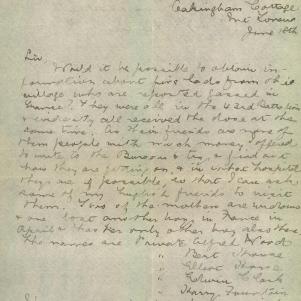 Oakingham Cottage
Mt Lorano
June 18th
Sir
Would it be possible to obtain in-
formation about five lads from this
village who are reported gassed in
France? They were all in the 42nd Battalion
& evidently all received the dose at the
same time. As their friends are none of
them people with much money I offered
to write to the Bureau & try & find out
how they are getting on, & in what hospital
they are if possible, so that I can ask
some of my English friends to visit
them. Two of the mothers are widows
& one lost another boy in France in
April & has her only other boy also there.
The names are Private Alfred Wood
" Bert House
" Elliot House
" Edwin Clark
" Harry Fountain